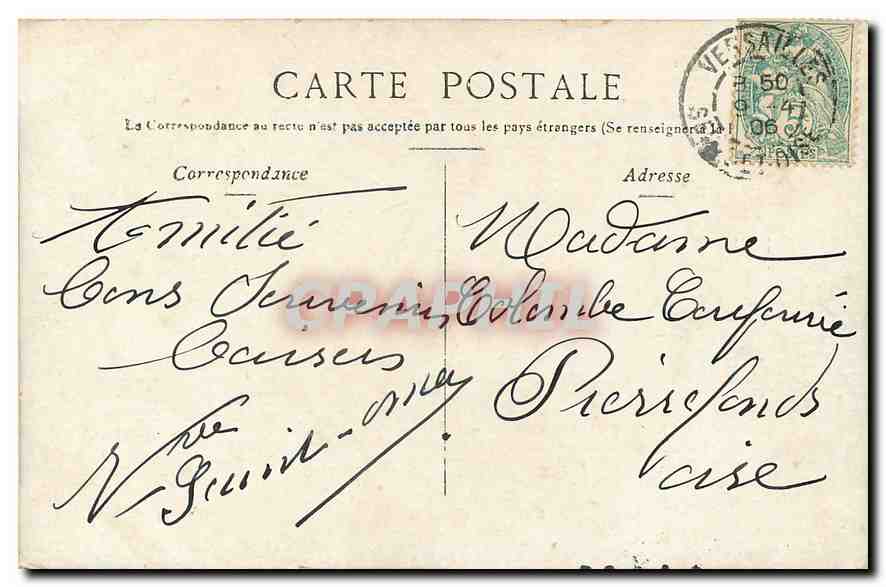 CARTE POSTALE
La Correspondance au recto n'est pas acceptée par tous les pays étrangers (Se renseigner à la
VERSAILLES
50
06
Correspondance
Amitié
Bons Souvenirs
Baisers
Vve Saint-Omer
Adresse
Madame
Colombe
Pierrefonds
Oise
CPAPHIL